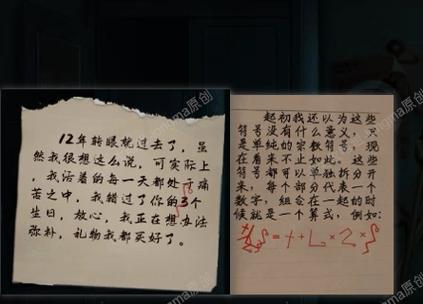 12年转眼就过去了，虽
然我很想这么说，可实际上
，我活着的每一天都处于痛
苦之中，我错过了你的3个
生日，放心，我正在想办法
弥补，礼物我都买好了。
起初我还以为这些
符号没有什么意义，只
是单纯的宗教符号，现
在看来不止如此。这些
符号都可以单独拆分开
来，每个部分代表一个
数字，组合在一起的时
候就是一个算式，例如: